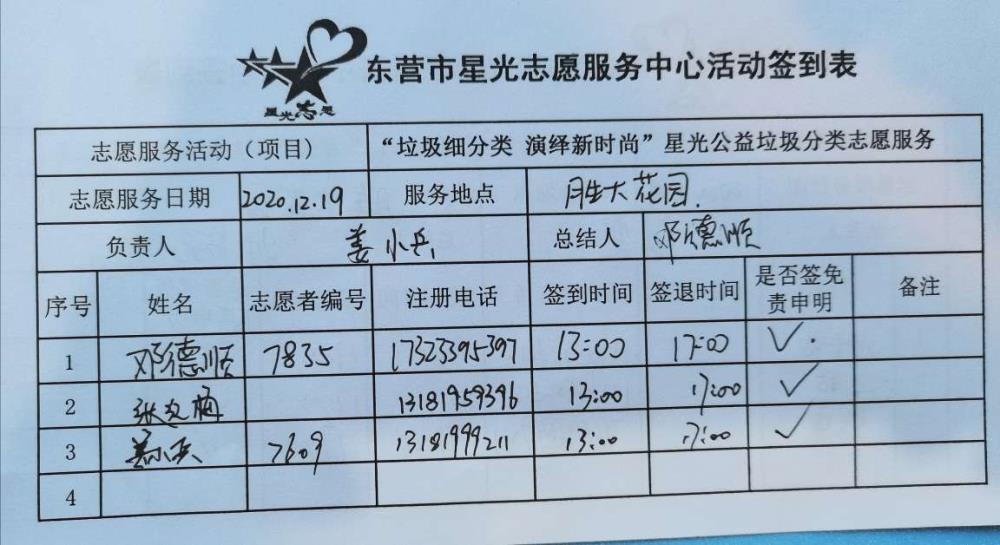 星光志愿
东营市星光志愿服务中心活动签到表
志愿服务活动（项目） “垃圾细分类 演绎新时尚”星光公益垃圾分类志愿服务
志愿服务日期 2020.12.19 服务地点 胜大花园.
负责人 姜小兵 总结人 邓德顺
序号 姓名 志愿者编号 注册电话 签到时间 签退时间 是否签免责申明 备注
1 邓德顺 7835 17323395397 13:00 17:00 ✓
2 13181959396 13:00 17:00 ✓
3 姜小兵 7609 13181999211 13:00 17:00 ✓
4